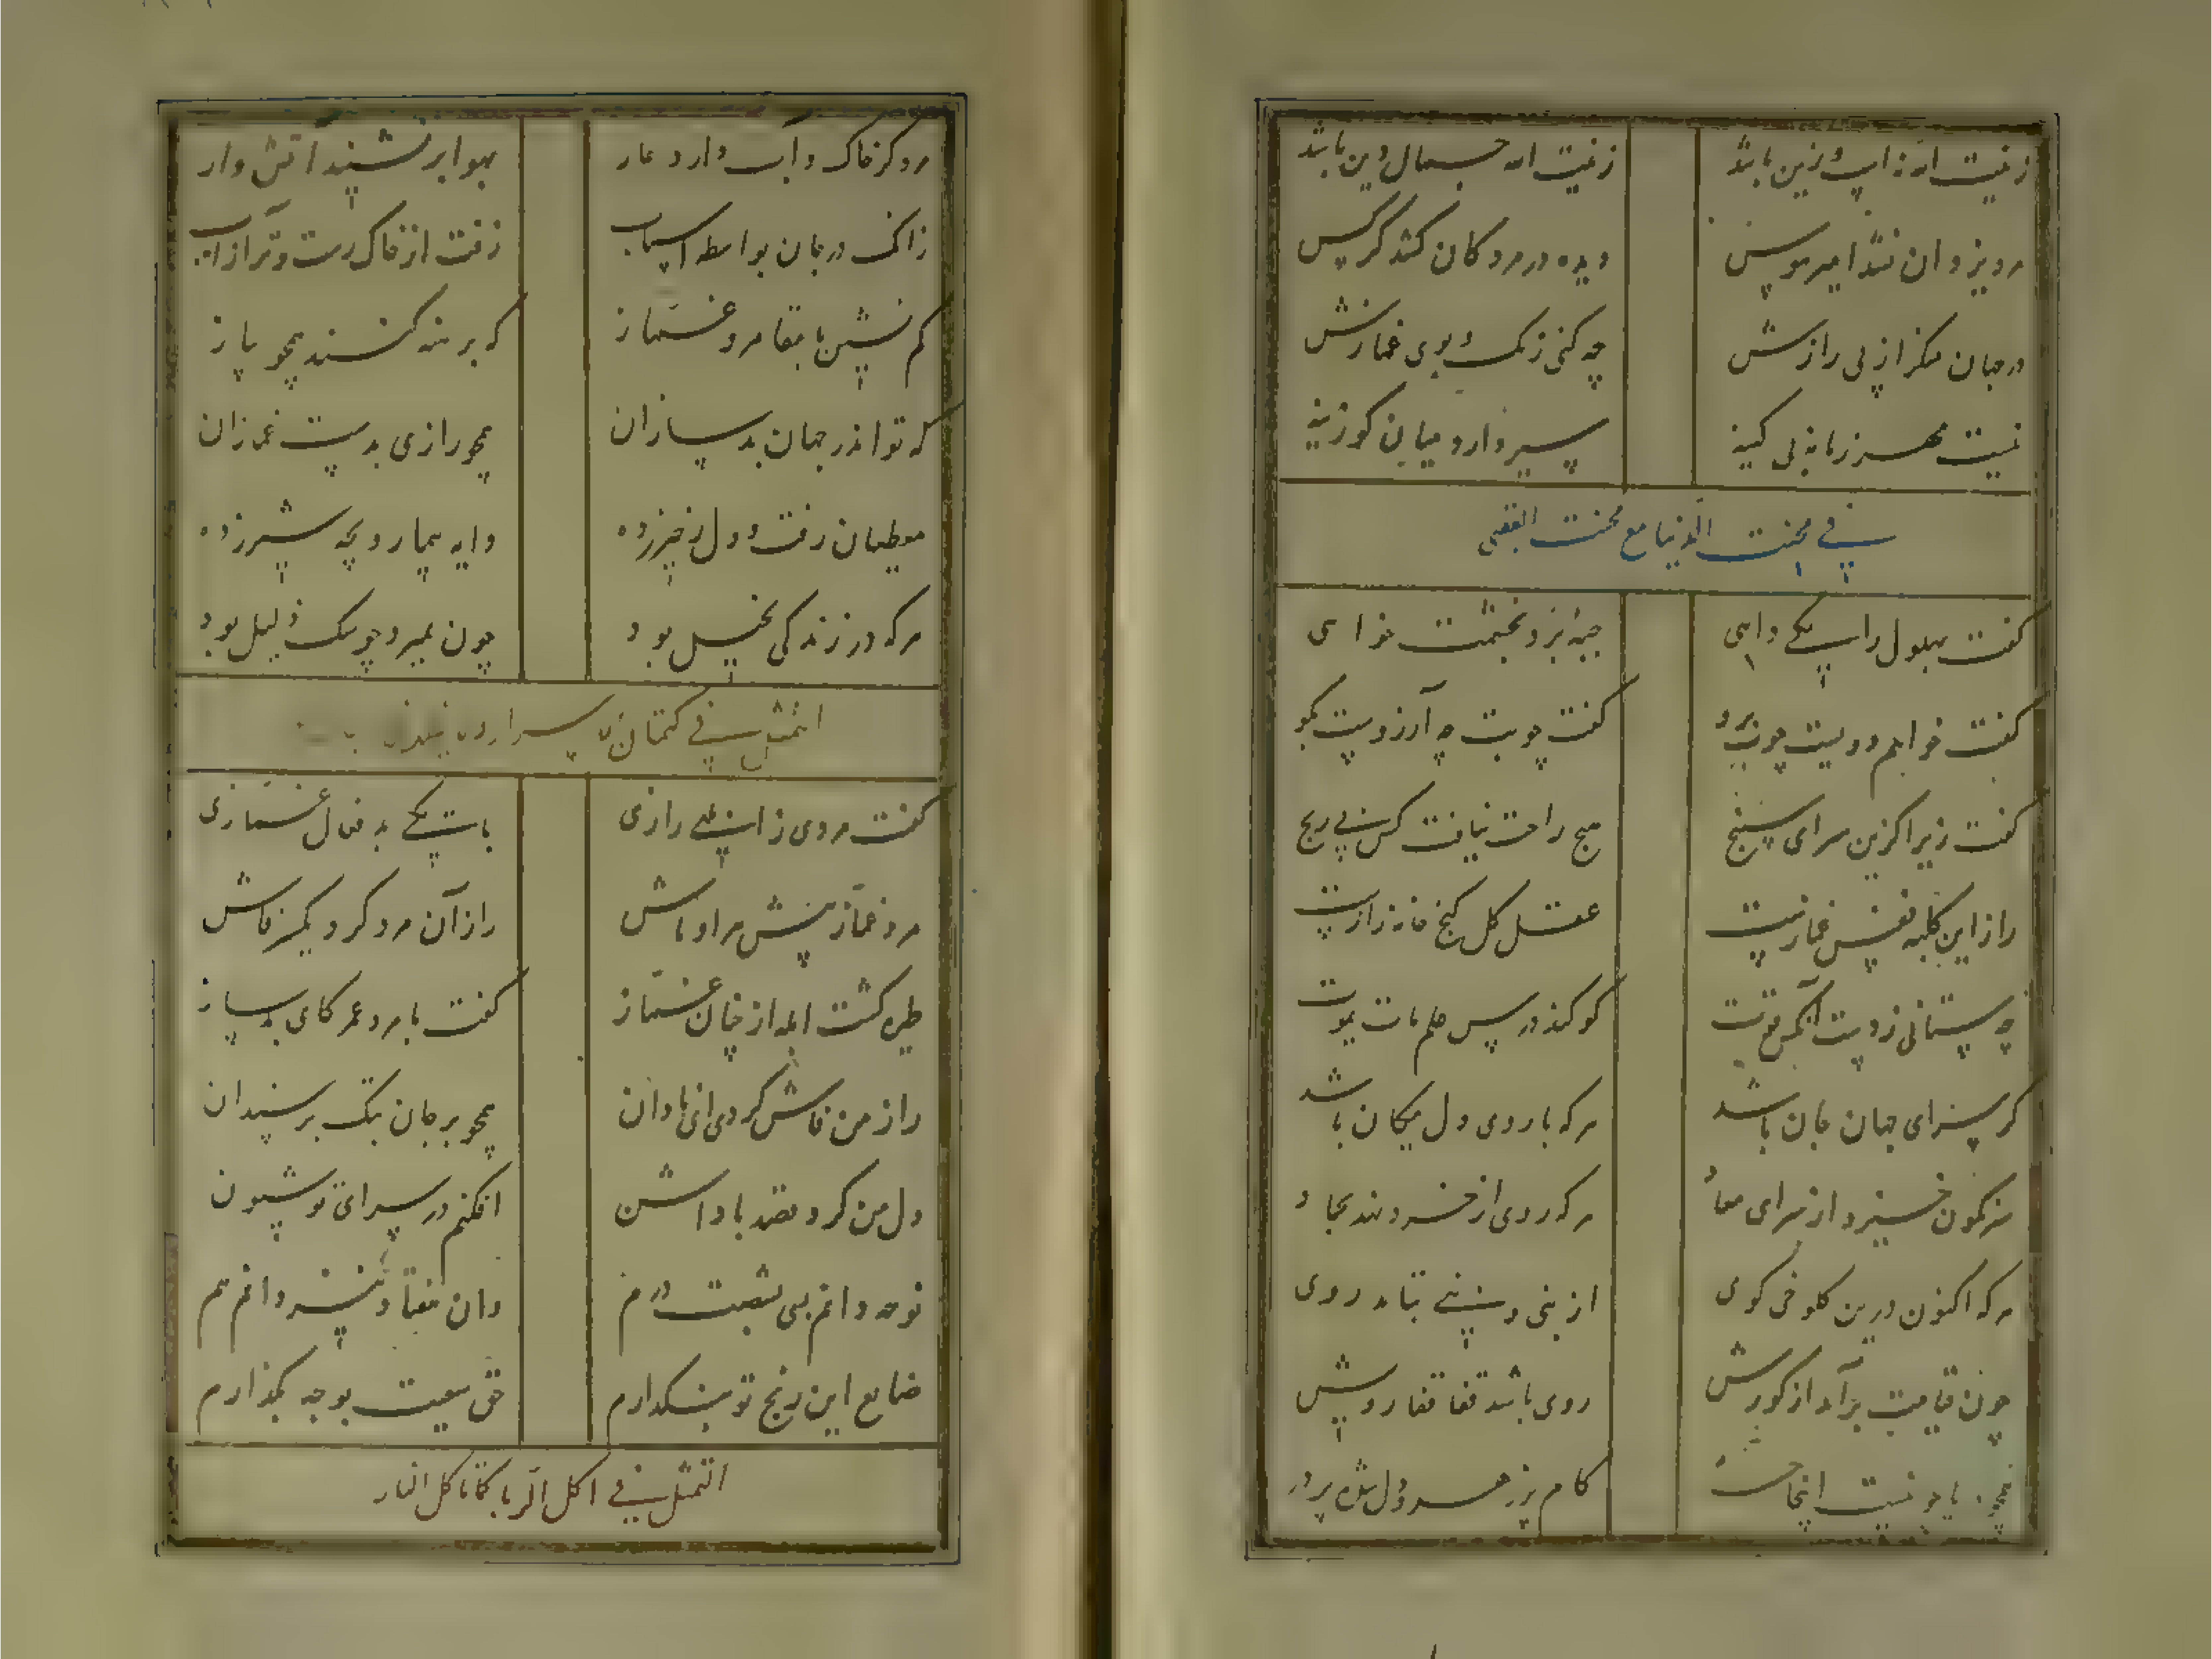 زینت الله نه اسپ و زین باشد زینت الله جمال دین باشد
مرد یزدان نشد امیر هوس دیده در مردگان کند کرکس
در جهان منکر از پی رازش چه کنی رنگ و بوی غمازش
نیست مهر زمانه بی کینه سیر دارد میان کوزینه
فی محنت الدنیا مع محنت الفقر
کفت بهلول را یکی داهی جبهٔ بزد بخشمت خواهی
کفت خواهم دویست چوب برو کفت چوبت چه آرزوست بکو
کفت زیرا کزین سرای سپنج هیچ راحت نیافت کس بی رنج
راز این کلبه نفس غمازست عقل کل کنج خانه رازست
چه ستانی ز دست آنکس قوت کو کند درس علم مات یموت
کر سزای جهان جان باشد هرکه با روی دل یکان باشد
سرنکون خیزد از سرای معاد هرکه روی از خرد نهد بجماد
هرکه اکنون درین کلوخی کوی از بنی و بنی نتابد روی
چون قیامت برآید از کورش روی باشد قفا قفا رویش
یا چو نیست اینجا کام پرزهر و دل شده پر درد
مرد کز خاک و آب دارد عار بهوا بر نشیند آتش وار
زانک در جان بواسطه اسباب زفت از خاک رست و تر از آب
کم نشین با مقامر و غماز که برهنه کنند همچو پیاز
که تو اندر جهان بدسازان همچو رازی بدست غمازان
موطیان رفته و دل زخیر زده دایه بیمار و بچه شیرزده
هرکه در زندکی بخیل بود چون بمیرد چو سک ذلیل بود
التمثل فی کتمان الاسرار
کفت مردی ز ابلهی رازی با یکی بد فعال غمازی
مرد غماز پیش هر اوباش راز آن مرد کرد یکسر فاش
طیره کشت ابله از چنان غماز کفت با مرد عمر کای بدساز
راز من فاش کردی ای نادان همچو بر جان بتک بر سندان
دل من کرد قصد پاداشن افکنم در سرای تو شیون
نوحه دانم بسی بشصت درم وان هفتاد نیز دانم هم
ضایع این رنج تو بنکذارم حق سعیت بوجه بکذارم
التمثل فی اکل الربا کاکل النار